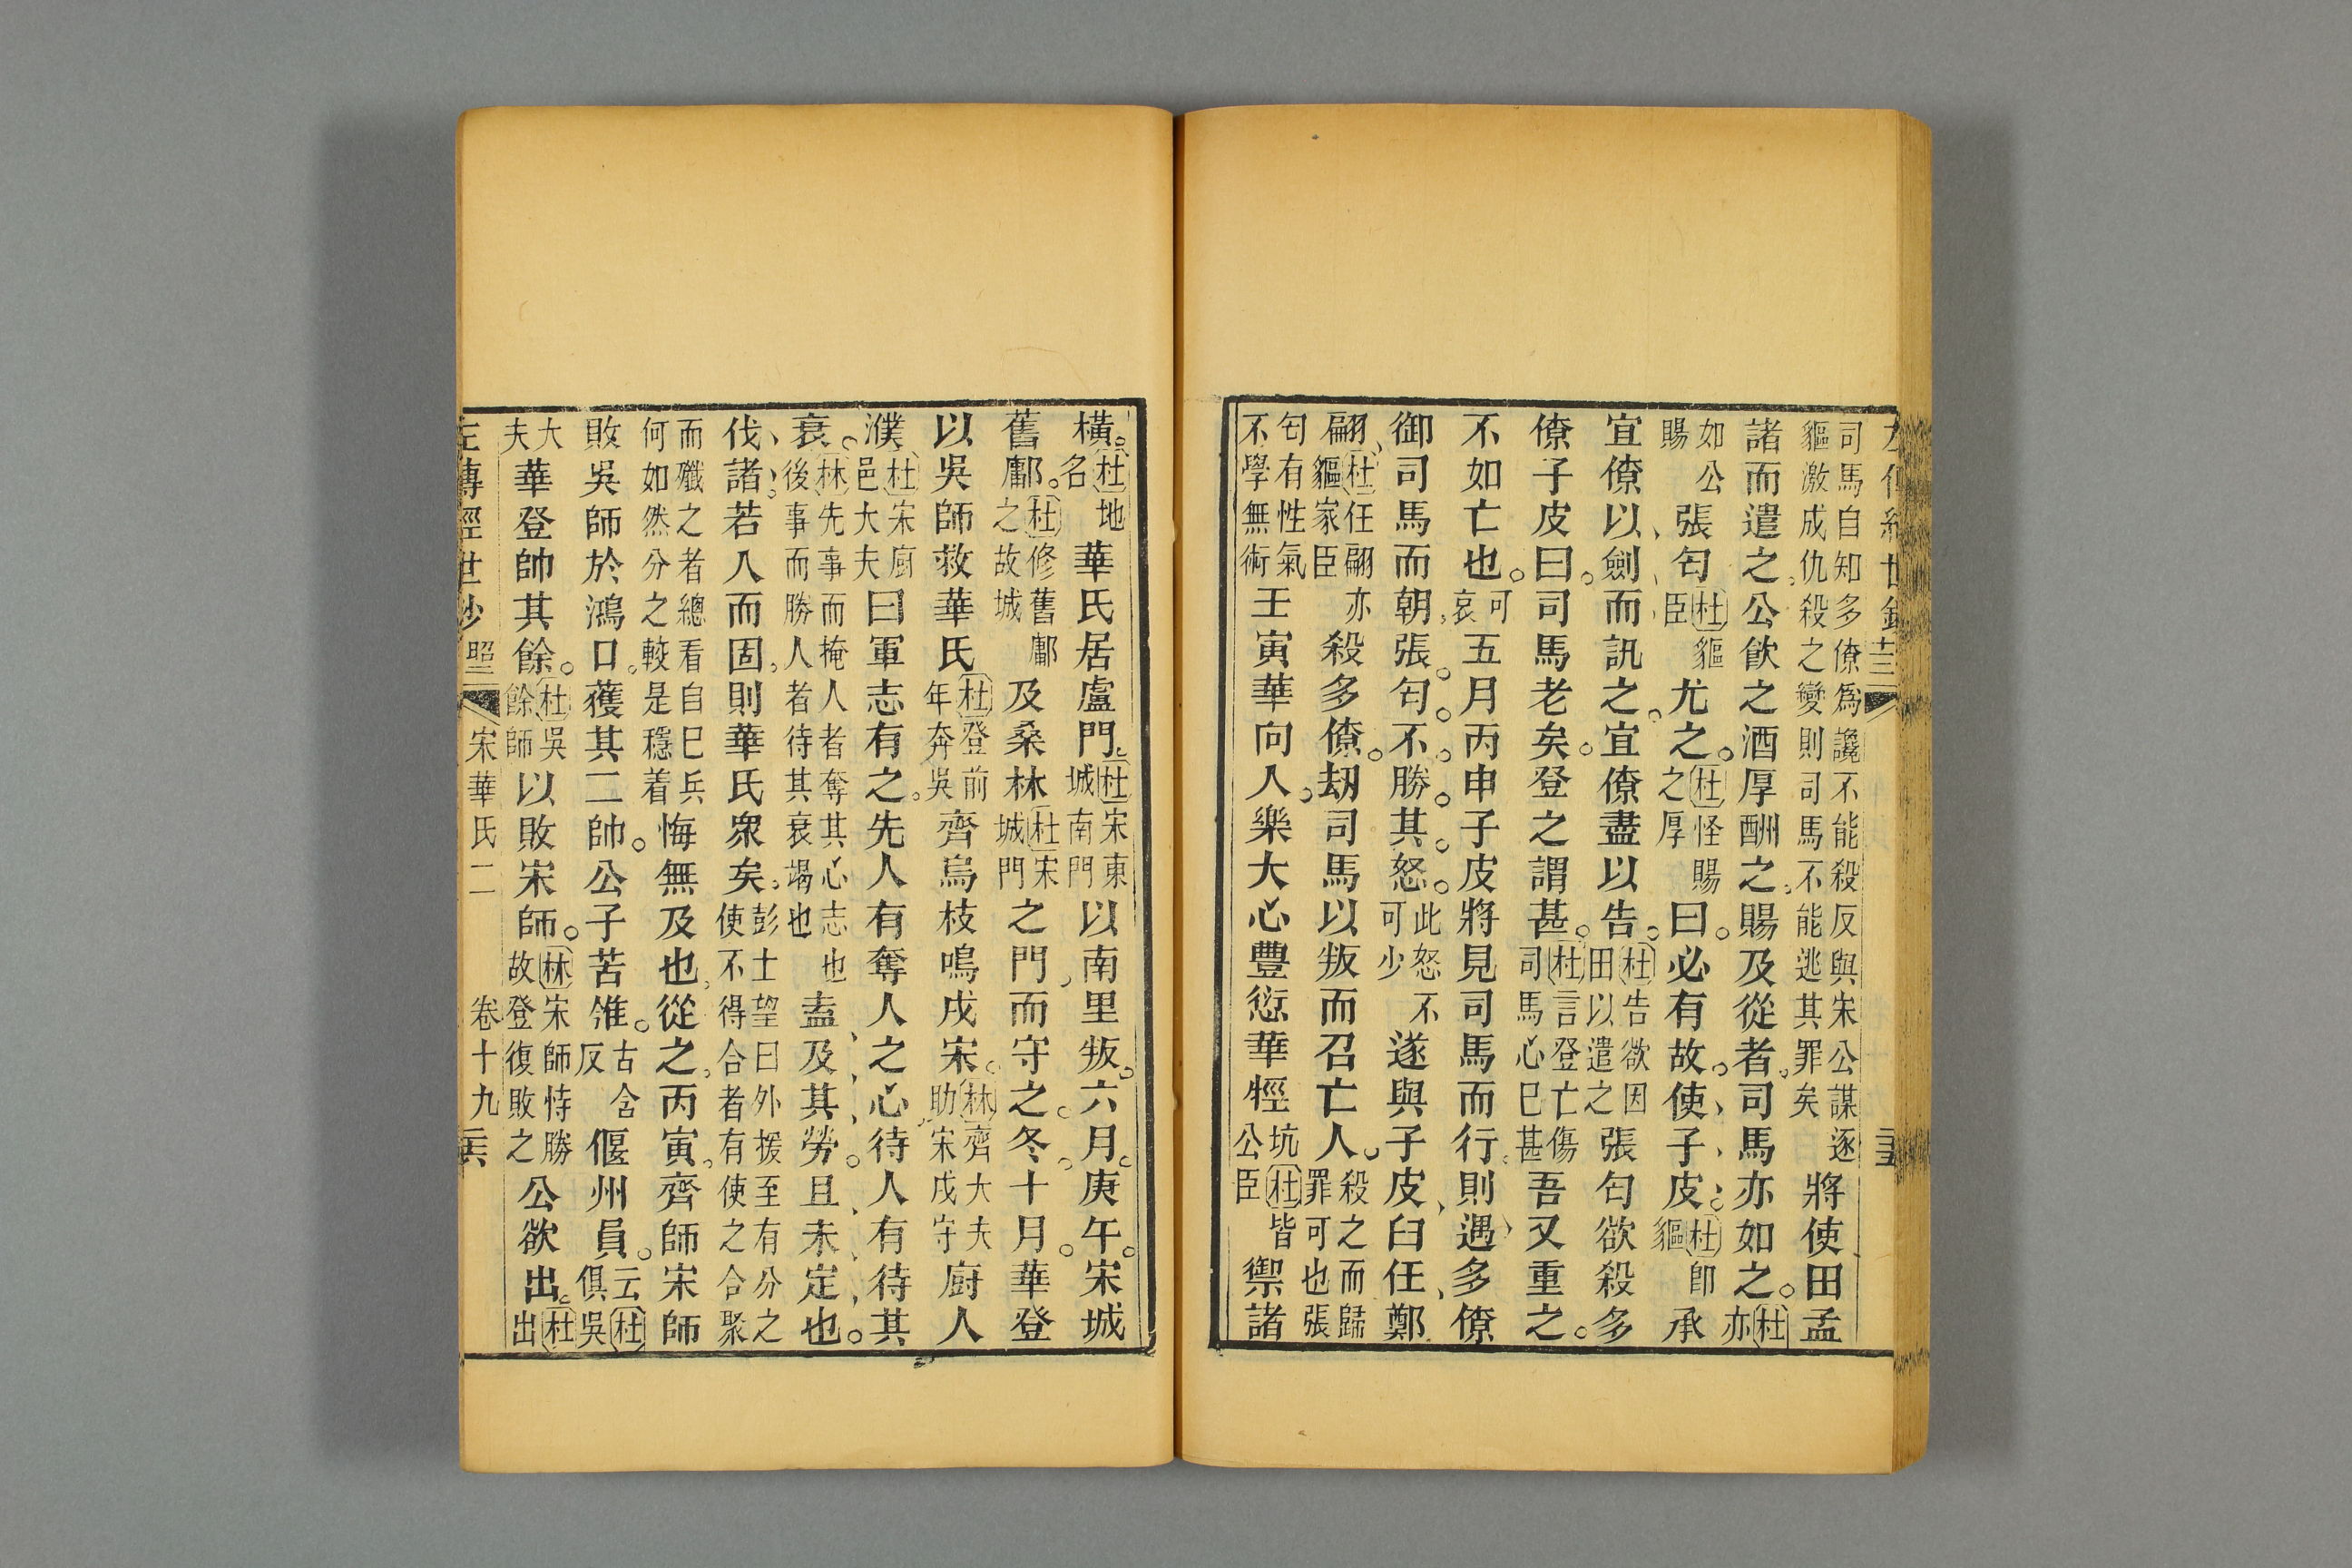 司馬自知多僚爲讒不能殺反與宋公謀逐貙激成仇殺之變則司馬不能逃其罪矣將使田孟
諸而遣之公飲之酒厚酬之賜及從者司馬亦如之杜亦
如公賜張匄杜貙臣尤之杜怪賜之厚曰必有故使子皮杜卽貙承
宜僚以劍而訊之宜僚盡以告杜告欲因田以遣之張匄欲殺多
僚子皮曰司馬老矣登之謂甚杜言登亡傷司馬心已甚吾又重之
不如亡也可哀五月丙申子皮將見司馬而行則遇多僚
御司馬而朝張匄不勝其怒此怒不可少遂與子皮臼任鄭
翩杜任翩亦貙家臣殺多僚劫司馬以叛而召亡人殺之而歸罪可也張
匄有性氣不學無術壬寅華向入樂大心豐愆華牼坑杜皆公臣禦諸
橫杜地名華氏居盧門杜宋東城南門以南里叛六月庚午宋城
舊鄘杜修舊鄘之故城及桑林杜宋城門之門而守之冬十月華登
以吳師救華氏杜登前年奔吳齊烏枝鳴戍宋林齊大夫助宋戍守廚人
濮杜宋廚邑大夫曰軍志有之先人有奪人之心待人有待其
衰林先事而掩人者奪其心志也後事而勝人者待其衰竭也盍及其勞且未定也
伐諸若入而固則華氏衆矣彭士望曰外援至有分之使不得合者有使之合聚
而殲之者總看自己兵何如然分之較是穩着悔無及也從之丙寅齊師宋師
敗吳師於鴻口獲其二帥公子苦雂古含反偃州員云杜俱吳
大夫華登帥其餘杜吳餘師以敗宋師林宋師恃勝故登復敗之公欲出杜出
左傳經世鈔 昭二 宋華氏二 卷十九